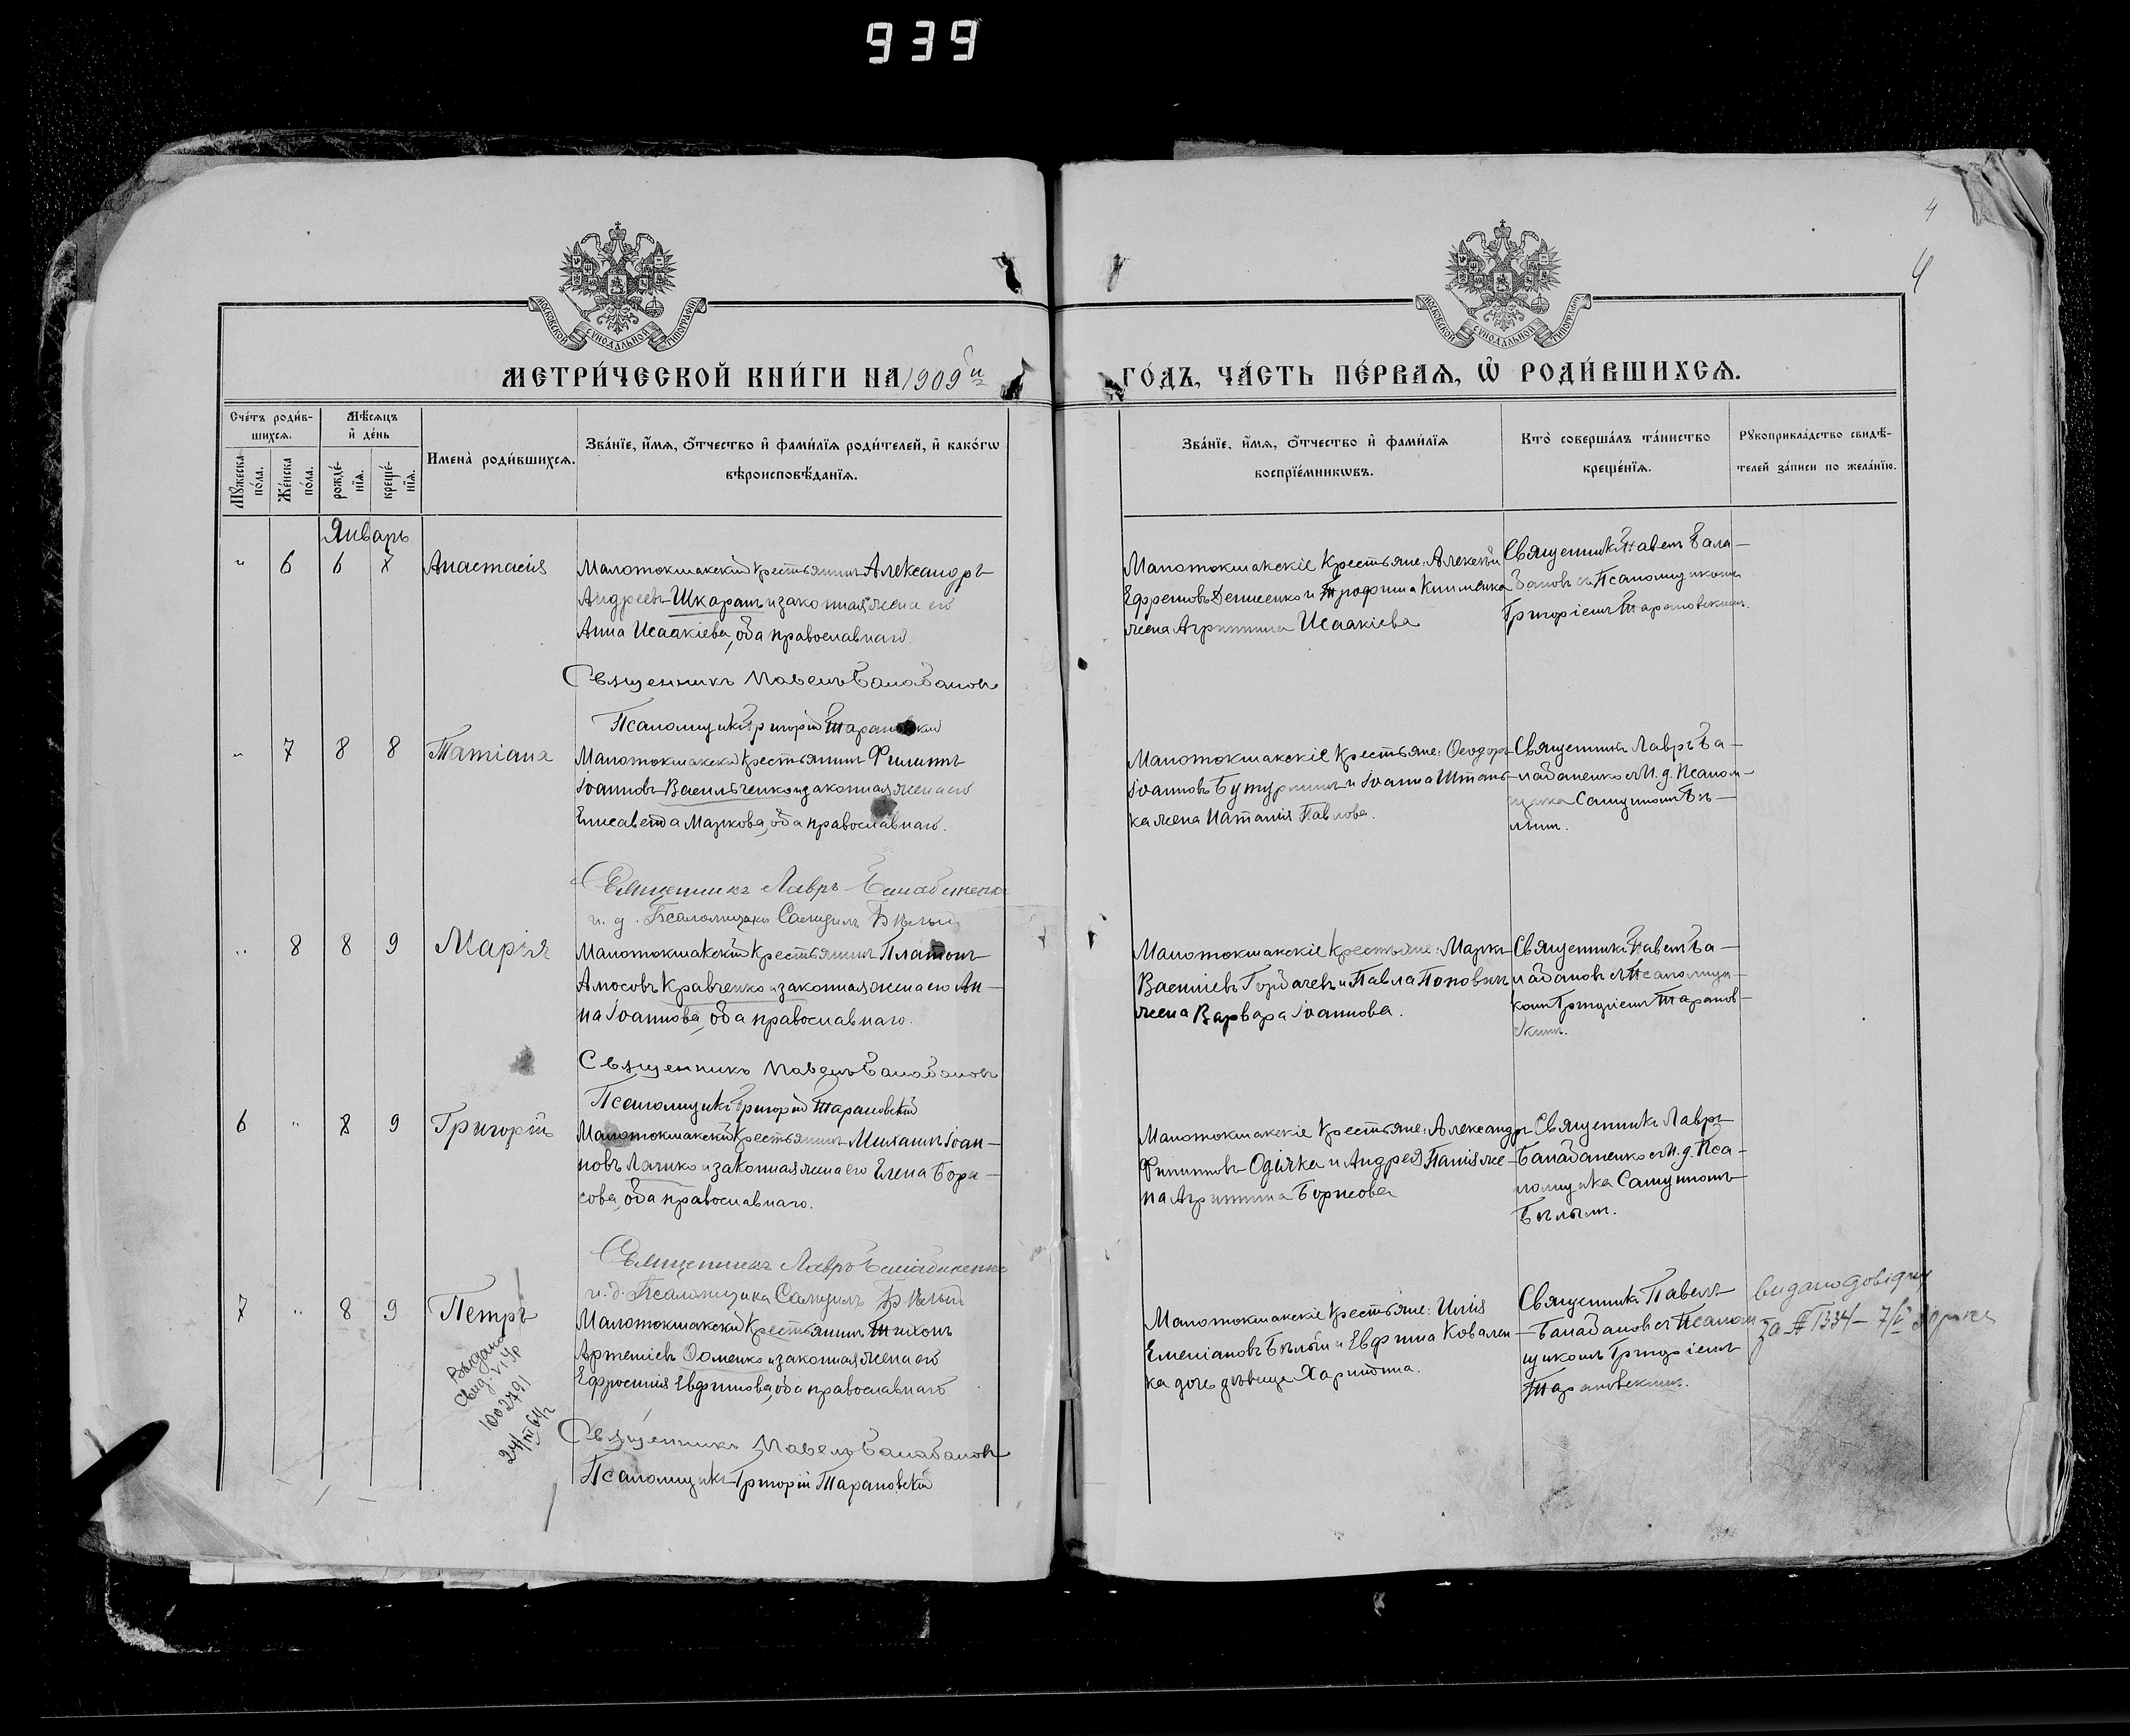 939
4
4
МОСКОВСКОЙ СѴНОДАЛЬНОЙ ТИПОГРАФІИ
МОСКОВСКОЙ СѴНОДАЛЬНОЙ ТИПОГРАФІИ
МЕТРИ́ЧЕСКОЙ КНИ́ГИ НА 1909й
ГО́ДЪ, ЧА́СТЬ ПЕ́РВАѦ, Ѡ҆ РОДИ́ВШИХСѦ.
Сче́тъ роди́в-
шихсѧ.
Мꙋ́жеска по́ла.
Же́нска по́ла.
Мѣ́сѧцъ
и҆ де́нь
рожде́-
нїѧ.
креще́-
нїѧ.
Имена̀ роди́вшихсѧ.
Зва́нїе, и҆́мѧ, ѻ҆́тчество и҆ фами́лїѧ роди́телей, и҆ како́гѡ
вѣроисповѣ́данїѧ.
Зва́нїе, и҆́мѧ, ѻ҆́тчество и҆ фами́лїѧ
воспрїе́мникѡвъ.
Кто̀ соверша́лъ та́инство
креще́нїѧ.
Рꙋкоприкла́дство свидѣ́-
телей за́писи по жела́нїю.
Январь
" 6 6 7 Анастасія
Малотокмакскій крестьянинъ Александръ
Андреевъ Шкарапъ и законная жена его
Анна Исаакіева, оба православнаго.
Священникъ Павелъ Балабановъ
Псаломщикъ Григорій Тарановскій
Малотокмакскіе крестьяне: Алексѣй
Ефремовъ Денисенко и Трофима Клименка
жена Агриппина Исаакіева
Священникъ Павелъ Бала-
бановъ съ Псаломщикомъ
Григоріемъ Тарановскимъ.
" 7 8 8 Татіана
Малотокмакскій крестьянинъ Филиппъ
Іоанновъ Васильченко и законная жена его
Елисавета Маркова, оба православнаго.
Священникъ Лавръ Балабаненко
и. д. Псаломщика Самуилъ Бѣлый
Малотокмакскіе крестьяне: Ѳеодоръ
Іоанновъ Бутуринъ и Іоанна Штань-
ка жена Наталія Павлова.
Священникъ Лавръ Ба-
лабаненко съ И. д. Псалом-
щика Самуиломъ Бѣ-
лымъ.
" 8 8 9 Марія
Малотокмакскій крестьянинъ Платонъ
Амосовъ Кравченко и законная жена его Ан-
на Іоаннова, оба православнаго.
Священникъ Павелъ Балабановъ
Псаломщикъ Григорій Тарановскій
Малотокмакскіе крестьяне: Маркъ
Васильевъ Горбачевъ и Павла Поповича
жена Варвара Іоаннова.
Священникъ Павелъ Ба-
лабановъ съ Псаломщи-
комъ Григоріемъ Таранов-
скимъ.
6 " 8 9 Григорій
Малотокмакскій крестьянинъ Михаилъ Іоан-
новъ Лячко и законная жена его Елена Бори-
сова, оба православнаго.
Священникъ Лавръ Балабаненко
и. д. Псаломщика Самуилъ Бѣлый
Малотокмакскіе крестьяне: Александръ
Филипповъ Одічка и Андрея Папія же-
на Агриппина Борисова
Священникъ Лавръ
Балабаненко съ И. д. Пса-
ломщика Самуиломъ
Бѣлымъ.
7 " 8 9 Петръ
Малотокмакскій крестьянинъ Тихонъ
Артеміевъ Ѳоменко и законная жена его
Ефросинія Евфимова, оба православнаго
Священникъ Павелъ Балабановъ
Псаломщикъ Григорій Тарановскій
Малотокмакскіе крестьяне: Илія
Емеліановъ Бѣлый и Евфима Ковален-
ка дочь дѣвица Харитина.
Священникъ Павелъ
Балабановъ съ Псалом-
щикомъ Григоріемъ
Тарановскимъ.
видано довідку
за № 1334 - 7/
Выдано
свид. VI УР
1002791
24/III 64 г